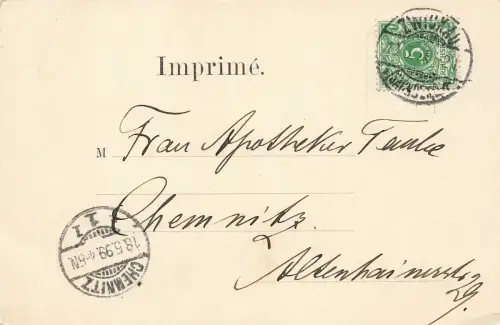 ZWICKAU
5
Imprimé.
M
Frau Apotheker Tauke
Chemnitz.
Altenhainerstr.
29.
CHEMNITZ
1 1
18.5.99. 4-5N